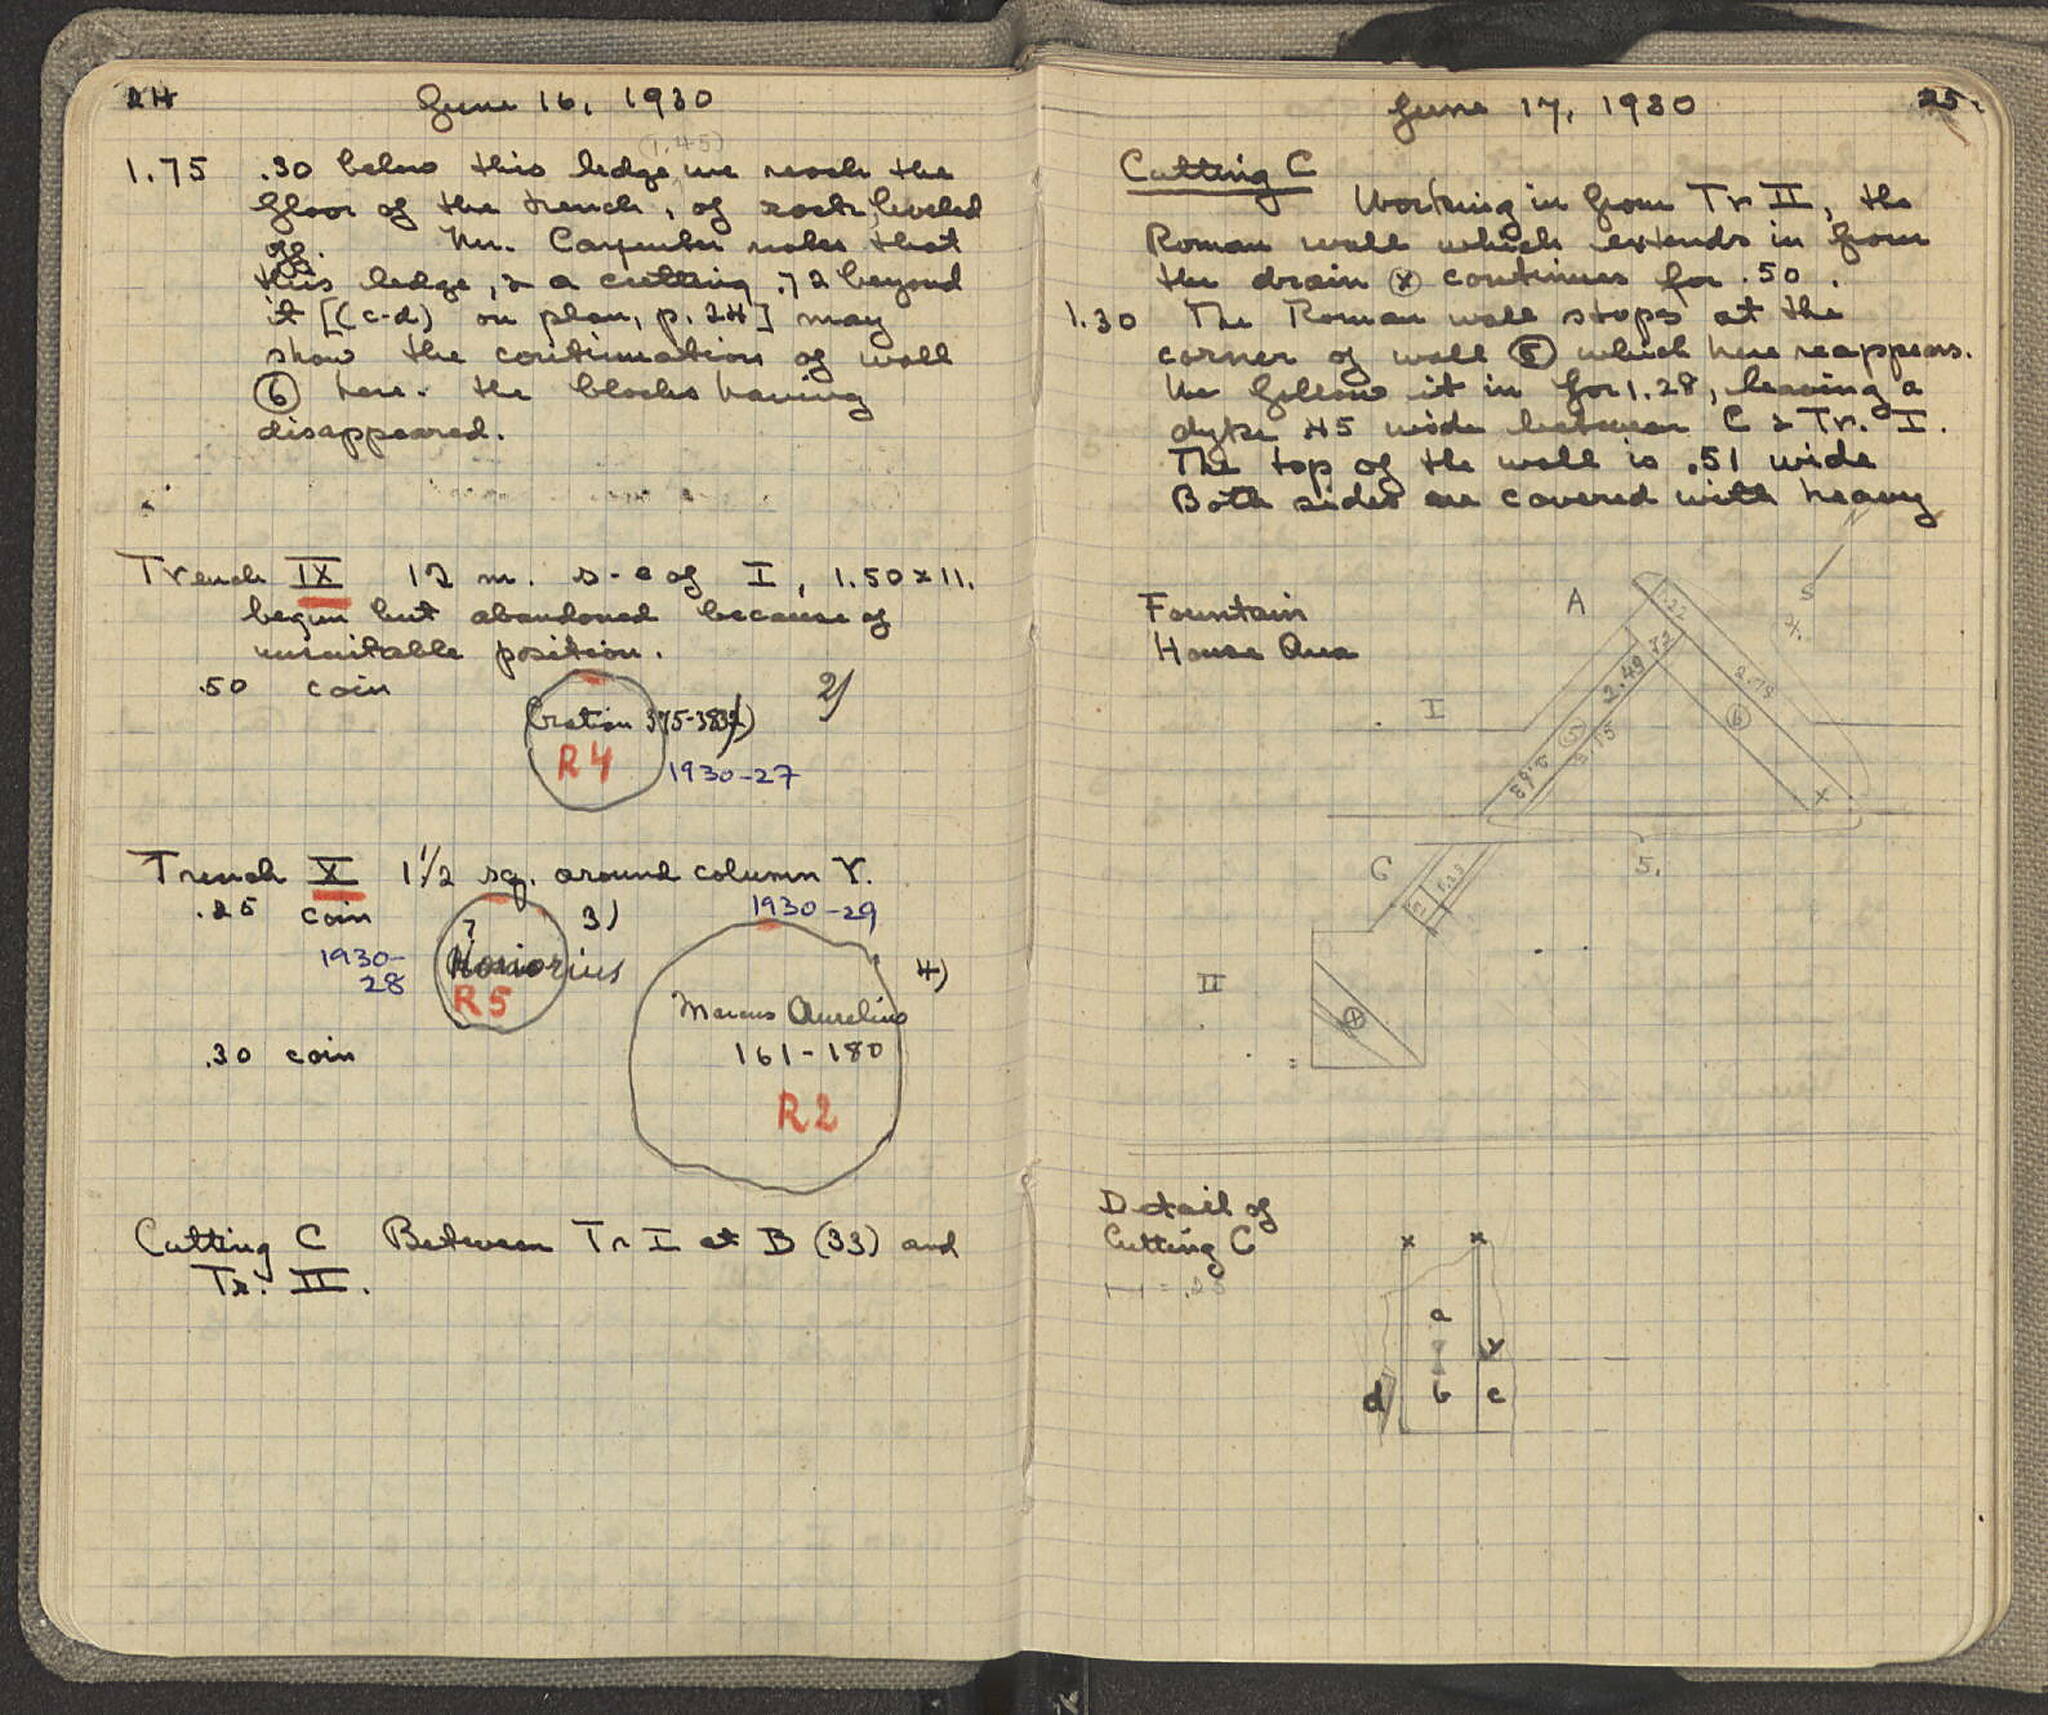 24
June 16, 1930
(1.45)
1.75 .30 below this ledge we reach the
floor of the trench, of rock leveled
off. Mr. Carpenter notes that
this ledge, & a cutting .72 beyond
it [(c-d) on plan, p. 24] may
show the continuation of wall
⑥ here. the blocks having
disappeared.
Trench IX 12 m. s-e of I, 1.50 x 11.
begun but abandoned because of
unsuitable position.
.50 coin
Gratian 375-383
2)
R4
1930-27
Trench X 1 1/2 sq. around column Y.
.25 coin
?
3)
1930-29
1930-
28
Honorius
R5
4)
Marcus Aurelius
161-180
.30 coin
R2
Cutting C Between Tr I at B (33) and
Tr. II.
June 17, 1930
25.
Cutting C
Working in from Tr II, the
Roman wall which extends in from
the drain ⓧ continues for .50.
1.30 The Roman wall stops at the
corner of wall ⑤ which here reappears.
We follow it in for 1.28, leaving a
dyke 45 wide between C & Tr. I.
The top of the wall is .51 wide
Both sides are covered with heavy
N
S
A
Fountain
House Area
.22
.72
2.49
2.78
I
⑥
⑤
5.15
2.63
x
C
5.
1.29
II
ⓧ
Detail of
Cutting C
= .25
x x
a
y
d b c